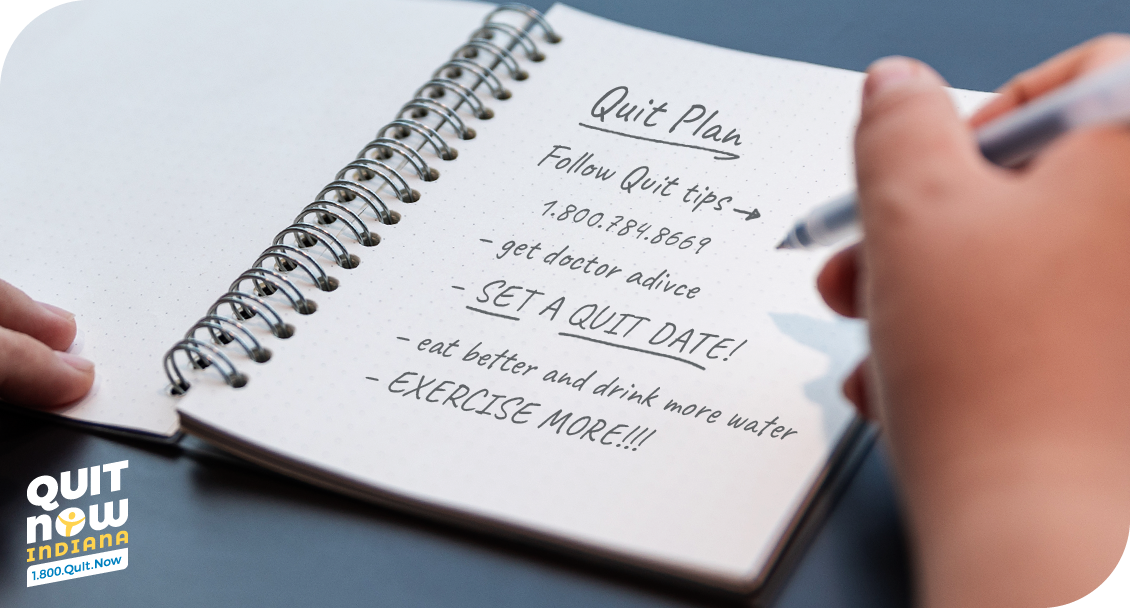 Quit Plan
Follow Quit tips →
1.800.784.8669
- get doctor adivce
- SET A QUIT DATE!
- eat better and drink more water
- EXERCISE MORE!!!
QUIT
NOW
INDIANA
1.800.Quit.Now